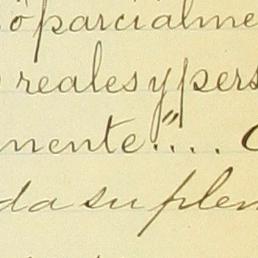 ó parcialme
reales y pers
mente."....
da su plen